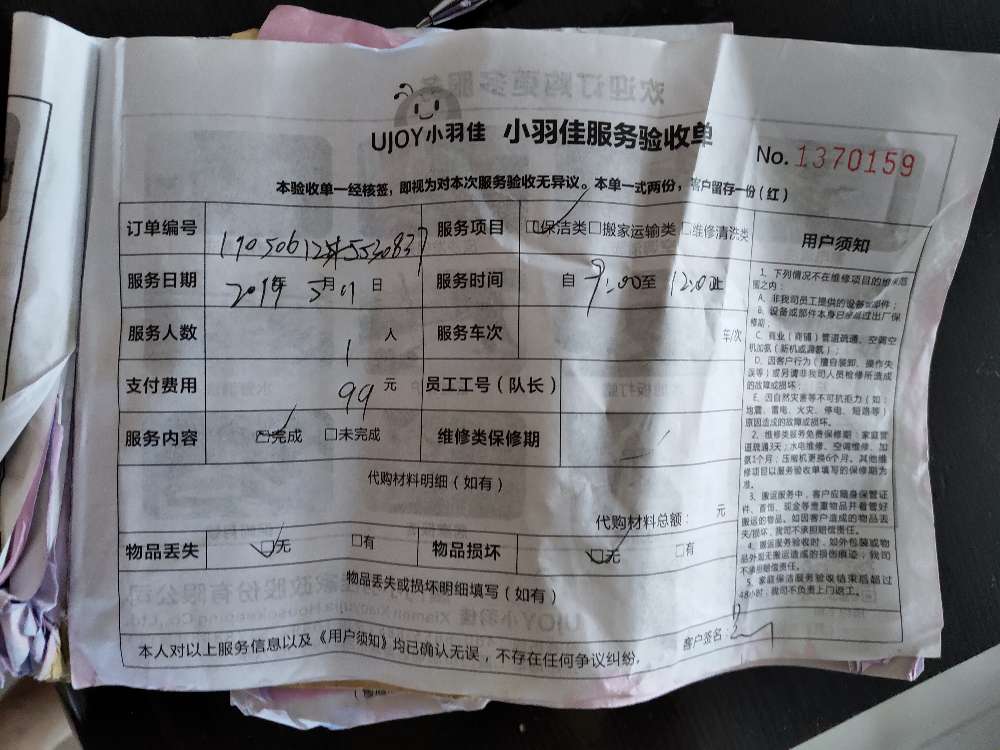 UJOY小羽佳 小羽佳服务验收单
No. 1370159
本验收单一经核签，即视为对本次服务验收无异议。本单一式两份，客户留存一份（红）
订单编号 服务项目 ☑保洁类□搬家运输类□维修清洗类
服务日期 2019年 5月 日 服务时间 自 9:00至 12:00止
服务人数 1 人 服务车次 车/次
支付费用 99 元 员工工号（队长）
服务内容 ☑完成 □未完成 维修类保修期
代购材料明细（如有）
代购材料总额： 元
物品丢失 ☑无 □有 物品损坏 ☑无 □有
物品丢失或损坏明细填写（如有）
本人对以上服务信息以及《用户须知》均已确认无误，不存在任何争议纠纷.
客户签名：
用户须知
1、下列情况不在维修项目的维保范
围之内：
A、非我司员工提供的设备或部件；
B、设备或部件本身已经超过出厂保
修期；
C、商业（商铺）管道疏通、空调空
机加氨（新机或漏氨）；
D、因客户行为（擅自装卸、操作失
误等）或另请非我司人员检修所造成
的故障或损坏；
E、因自然灾害等不可抗拒力（如：
地震、雷电、火灾、停电、短路等）
原因造成的故障或损坏。
2、维修类服务免费保修期：家庭管
道疏通3天；水电维修、空调维修、加
氨1个月；压缩机更换6个月。其他维
修项目以服务验收单填写的保修期为
准。
3、搬运服务中，客户应随身保管证
件、首饰、现金等贵重物品并看管好
搬运的物品。如因客户造成的物品丢
失/损坏，我司不承担赔偿责任。
4、搬运服务验收时，如外包装或物
品外观无搬运造成的损伤痕迹，我司
不承担赔偿责任。
5、家庭保洁服务验收结束后超过
48小时，我司不负责上门返工。